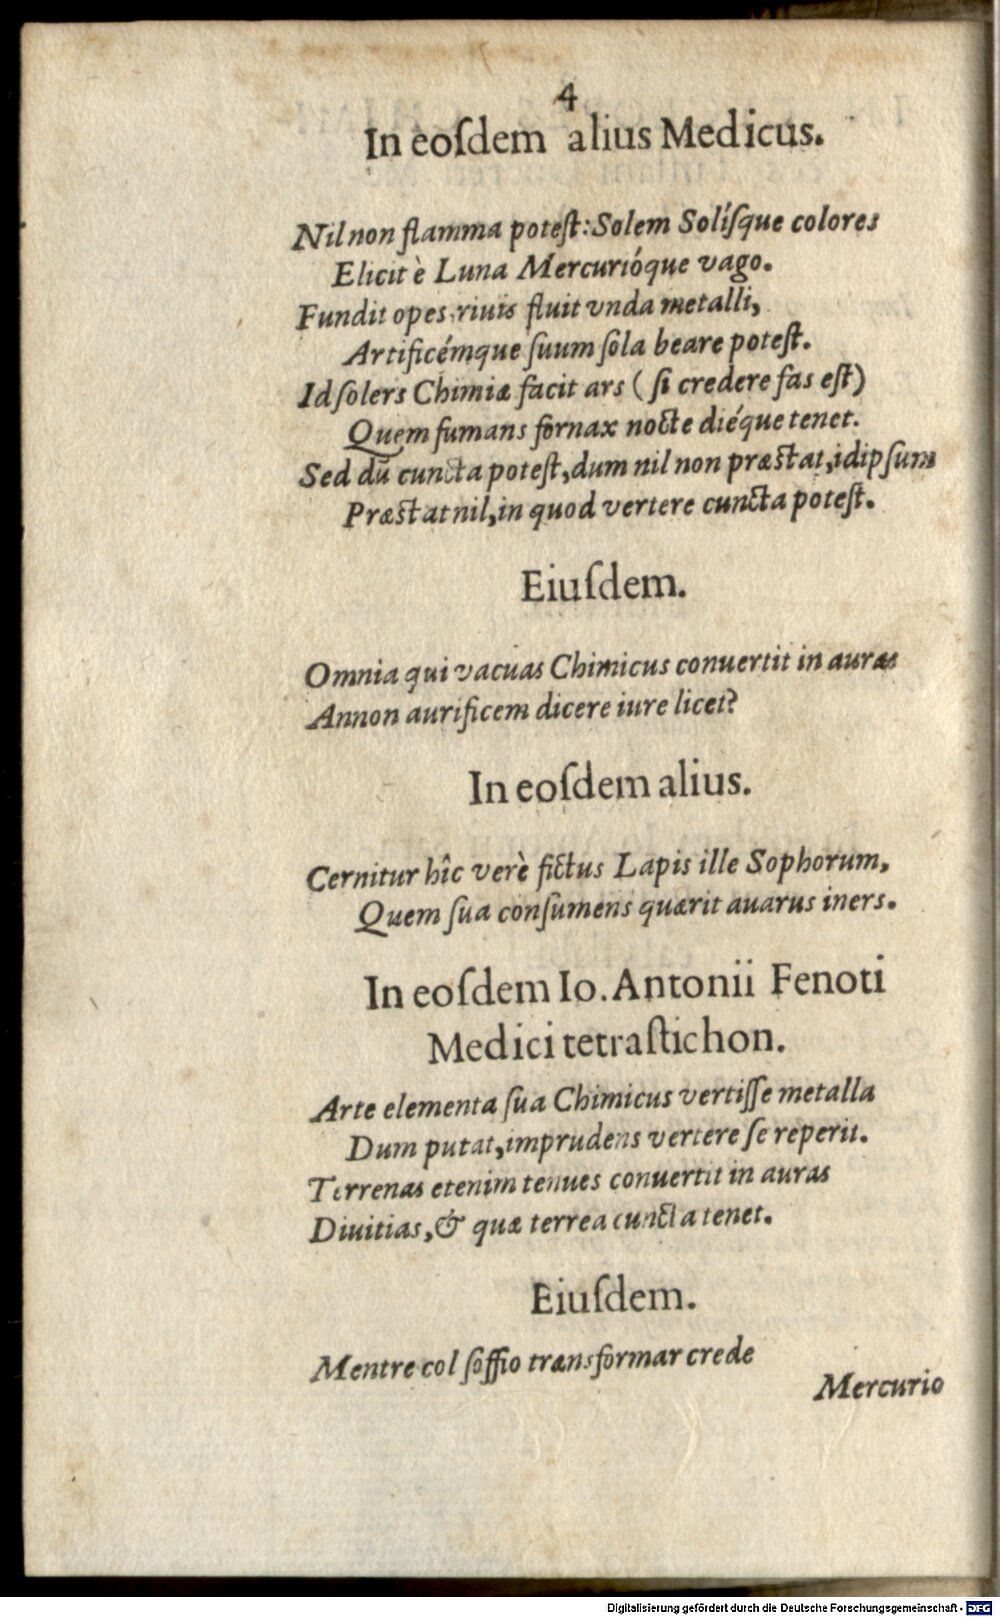 4
In eoſdem alius Medicus.
Nil non flamma poteſt: Solem Solíſque colores
Elicit è Luna Mercurióque vago.
Fundit opes, riuis fluit vnda metalli,
Artificémque ſuum ſola beare poteſt.
Id ſolers Chimiæ facit ars ( ſi credere fas eſt)
Quem fumans fornax nocte diéque tenet.
Sed dū cuncta poteſt, dum nil non præſtat, id ipſum
Præſtat nil, in quod vertere cuncta poteſt.
Eiuſdem.
Omnia qui vacuas Chimicus conuertit in auras
Annon aurificem dicere iure licet?
In eoſdem alius.
Cernitur hîc verè fictus Lapis ille Sophorum,
Quem ſua conſumens quærit auarus iners.
In eoſdem Io. Antonii Fenoti
Medici tetraſtichon.
Arte elementa ſua Chimicus vertiſſe metalla
Dum putat, imprudens vertere ſe reperit.
Terrenas etenim tenues conuertit in auras
Diuitias, & quæ terrea cuncta tenet.
Eiuſdem.
Mentre col ſoffio transformar crede
Mercurio
Digitalisierung gefördert durch die Deutsche Forschungsgemeinschaft - DFG